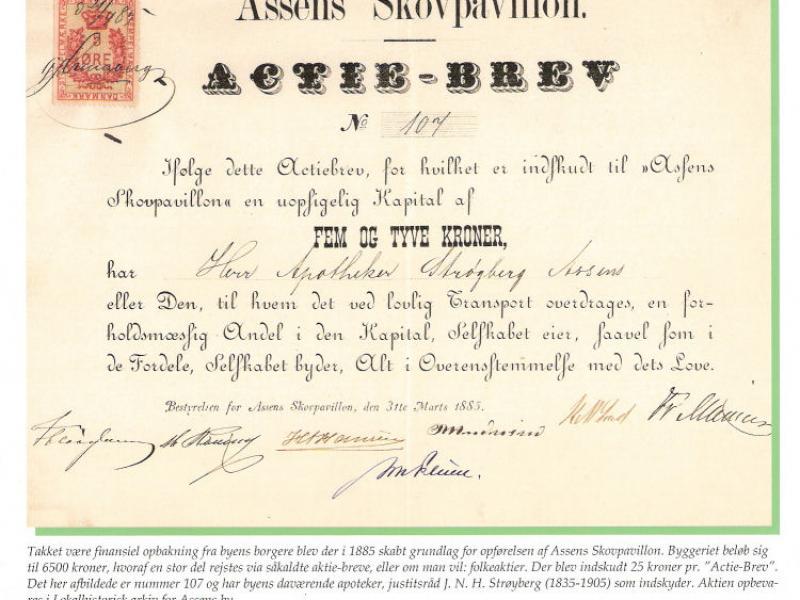 Assens Skovpavillon.
ØRE
DANMARK
ACTIE-BREV
No 107
Ifølge dette Actiebrev, for hvilket er indskudt til »Assens
Skovpavillon« en uopsigelig Kapital af
FEM OG TYVE KRONER,
har Herr Apotheker Strøyberg Assens
eller Den, til hvem det ved lovlig Transport overdrages, en for-
holdsmæssig Andel i den Kapital, Selskabet eier, saavel som i
de Fordele, Selskabet byder, Alt i Overensstemmelse med dets Love.
Bestyrelsen for Assens Skovpavillon, den 31te Marts 1885.
Takket være finansiel opbakning fra byens borgere blev der i 1885 skabt grundlag for opførelsen af Assens Skovpavillon. Byggeriet beløb sig
til 6500 kroner, hvoraf en stor del rejstes via såkaldte aktie-breve, eller om man vil: folkeaktier. Der blev indskudt 25 kroner pr. "Actie-Brev".
Det her afbildede er nummer 107 og har byens daværende apoteker, justitsråd J. N. H. Strøyberg (1835-1905) som indskyder. Aktien opbeva-
res i Lokalhistorisk arkiv for Assens by.